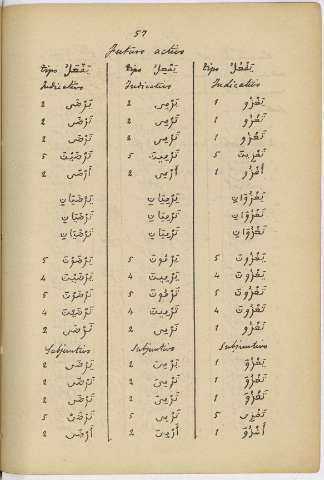 57
Futuro activo
tipo يَفْعَلُ tipo يَفْعِلُ tipo يَفْعُلُ
Indicativo Indicativo Indicativo
2 يَرْضَى 2 يَرْمِى 1 يَغْزُو
2 تَرْضَى 2 تَرْمِى 1 تَغْزُو
2 تَرْضَى 2 تَرْمِى 1 تَغْزُو
5 تَرْضَيْنَ 5 تَرْمِينَ 5 تَغْزِينَ
2 أَرْضَى 2 أَرْمِى 1 أَغْزُو
يَرْضَيَانِ يَرْمِيَانِ يَغْزُوَانِ
تَرْضَيَانِ تَرْمِيَانِ تَغْزُوَانِ
تَرْضَيَانِ تَرْمِيَانِ تَغْزُوَانِ
5 يَرْضَوْنَ 5 يَرْمُونَ 5 يَغْزُونَ
4 يَرْضَيْنَ 4 يَرْمِينَ 4 يَغْزُونَ
5 تَرْضَوْنَ 5 تَرْمُونَ 5 تَغْزُونَ
4 تَرْضَيْنَ 4 تَرْمِينَ 4 تَغْزُونَ
2 نَرْضَى 2 نَرْمِى 1 نَغْزُو
Subjuntivo Subjuntivo Subjuntivo
2 يَرْضَى 2 يَرْمِىَ 1 يَغْزُوَ
2 تَرْضَى 2 تَرْمِىَ 1 تَغْزُوَ
2 تَرْضَى 2 تَرْمِىَ 1 تَغْزُوَ
5 تَرْضَىْ 5 تَرْمِى 5 تَغْزِى
2 أَرْضَى 2 أَرْمِىَ 1 أَغْزُوَ